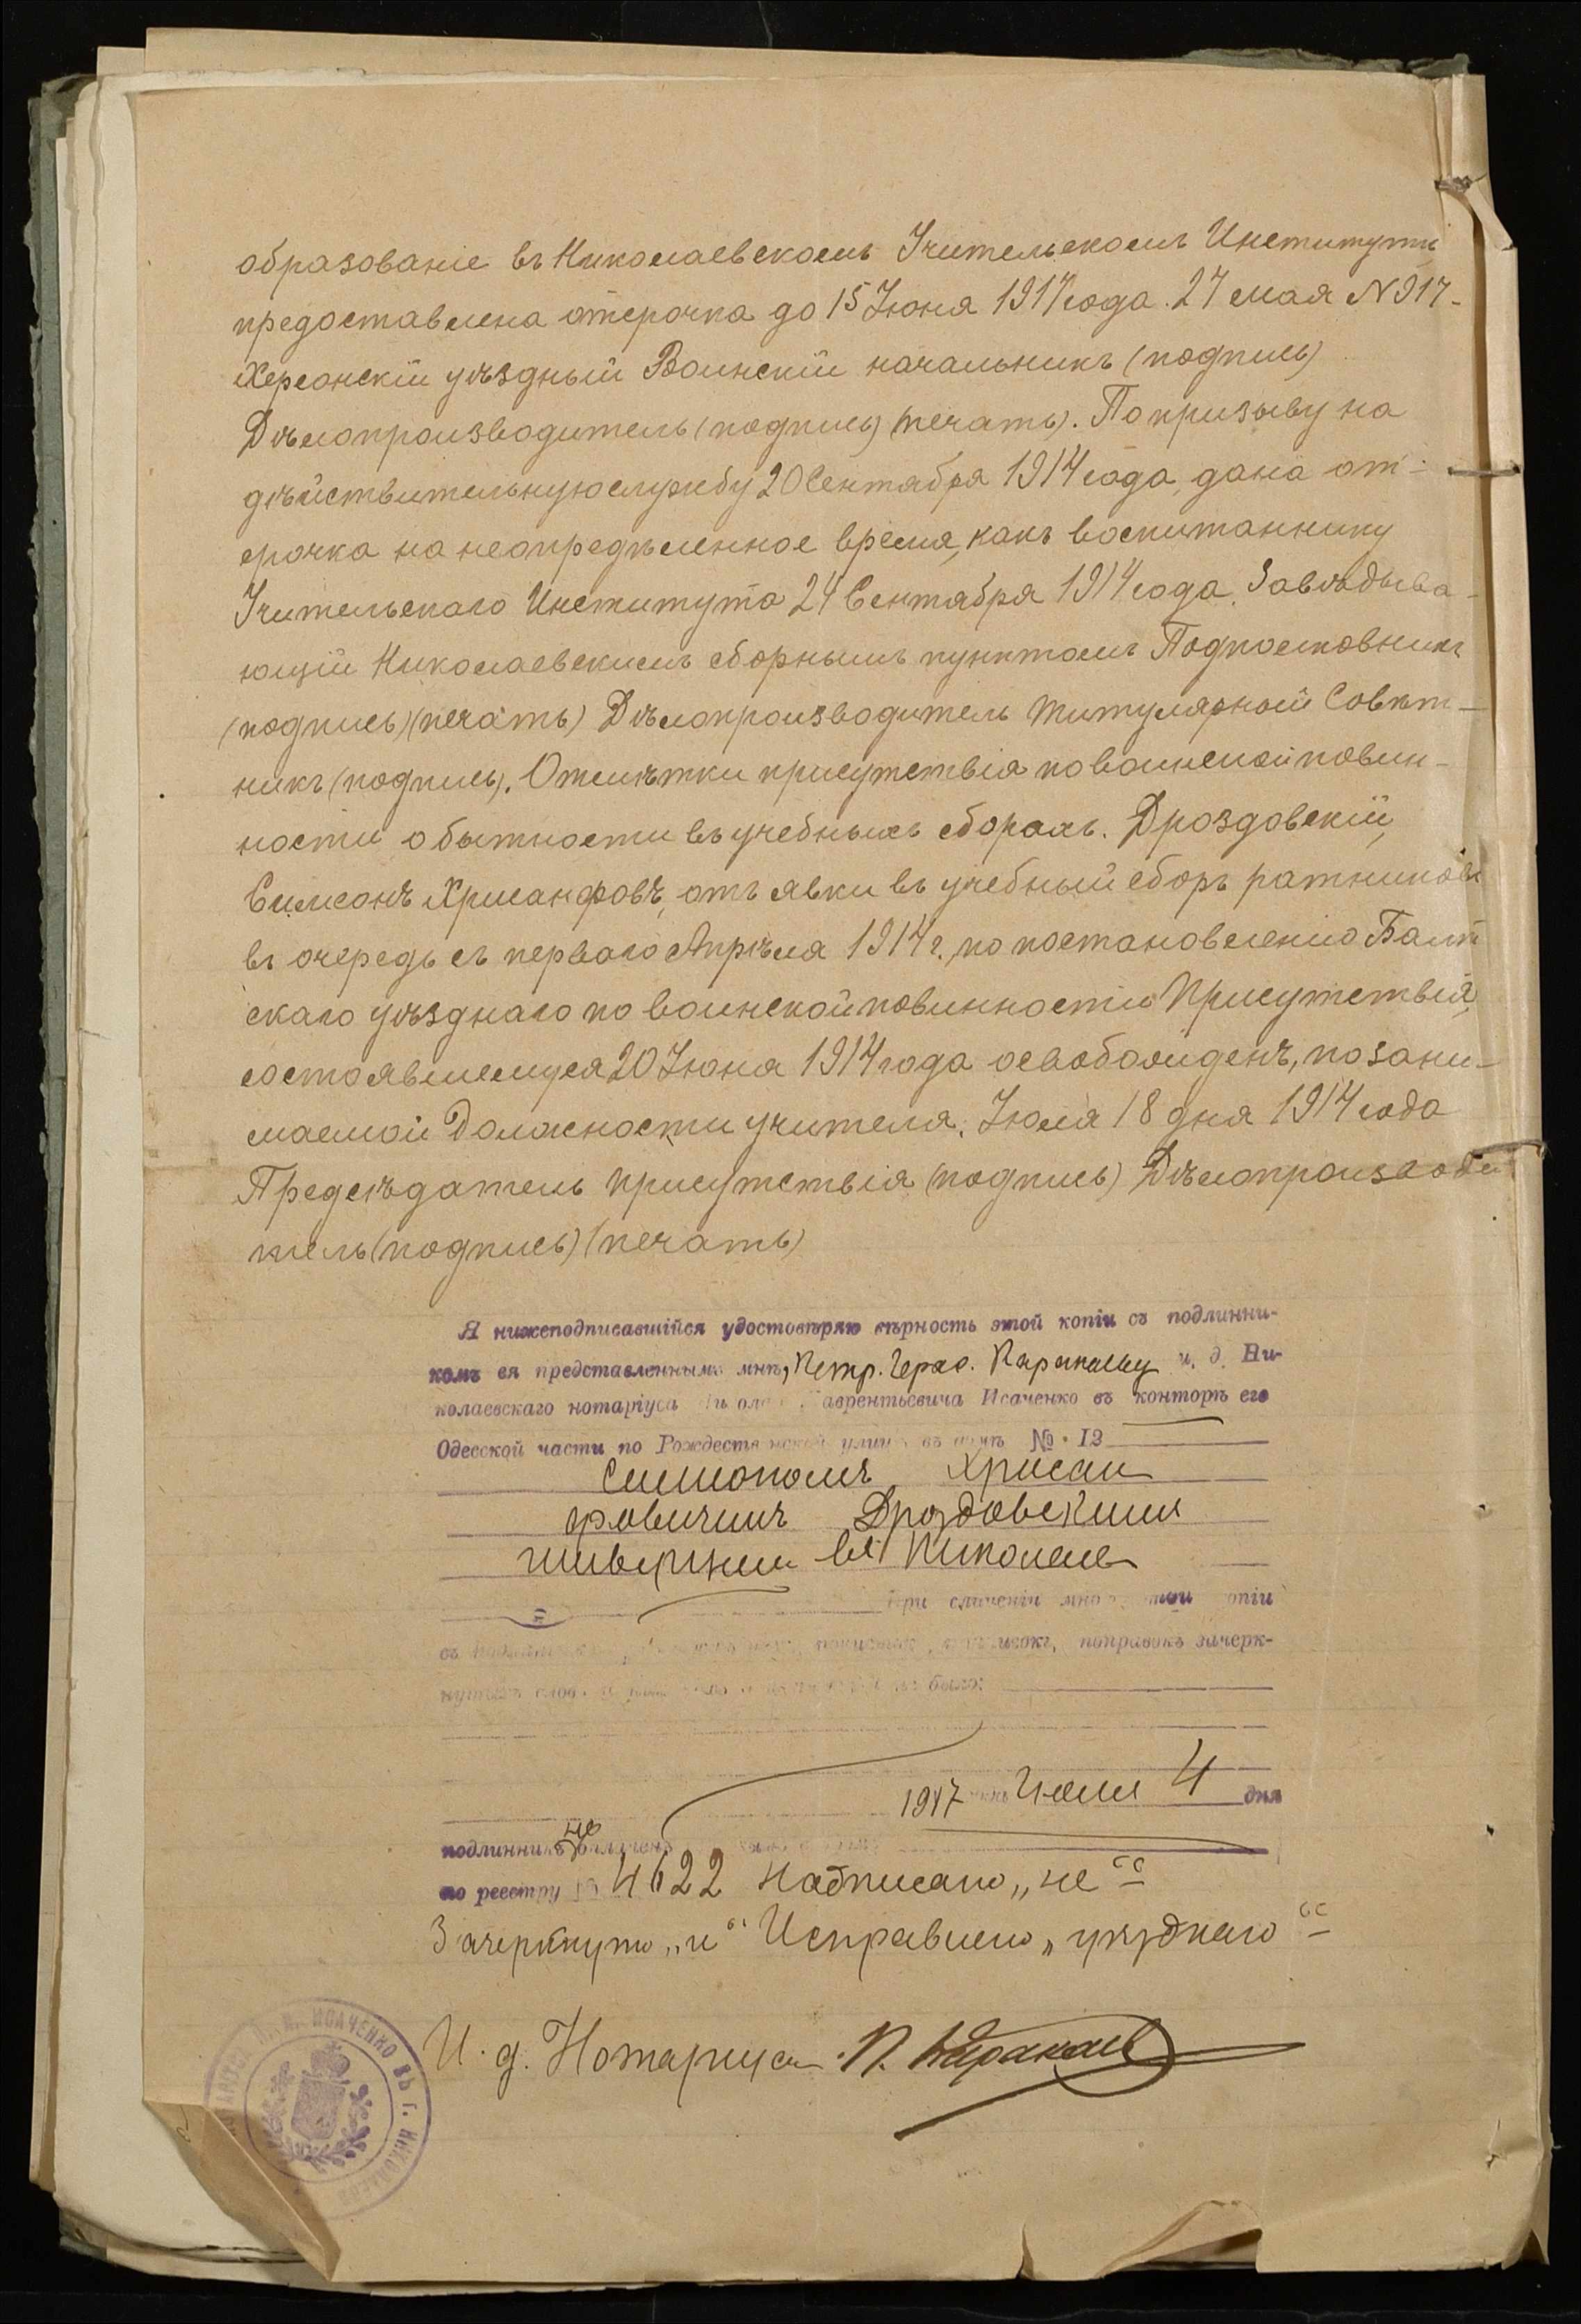 образованіе въ Николаевскомъ Учительскомъ Институтѣ
предоставлена отсрочка до 15 Іюня 1917 года. 27 мая № 917-
Херсонскій уѣздный Воинскій начальникъ (подпись)
Дѣлопроизводитель (подпись) (печать). По призыву на
дѣйствительную службу 20 Сентября 1914 года, дана от-
срочка на неопредѣленное время, какъ воспитаннику
Учительскаго Института 24 Сентября 1914 года. Завѣдыва-
ющій Николаевскимъ сборнымъ пунктомъ Подполковникъ
(подпись) (печать) Дѣлопроизводитель Титулярный Совѣт-
никъ (подпись). Отмѣтки присутствія по воинской повин-
ности о бытности въ учебныхъ сборахъ. Дроздовскій,
Симеонъ Хрисанфовъ, отъ явки въ учебный сборъ ратниковъ
въ очередь съ перваго Апрѣля 1914 г., по постановленію Балт
скаго уѣзднаго по воинской повинности Присутствія,
состоявшемуся 20 Іюня 1914 года освобожденъ, по зани-
маемой Должности учителя. Іюля 18 дня 1914 года
Предсѣдатель присутствія (подпись) Дѣлопроизводи
тель (подпись) (печать)
Я нижеподписавшійся удостовѣряю вѣрность этой копіи съ подлинни-
комъ ея представленнымъ мнѣ, Петр. Герас. Каракаеву и. д. Ни-
колаевскаго нотаріуса Лаврентьевича Исаченко въ конторѣ его
Одесской части по Рождественской улицѣ въ домѣ № 13
Симіономъ Хрисан
фовичимъ Дроздовскимъ
живущимъ въ Николаеве
При сличеніи мною этой копіи
съ поправокъ зачерк-
нутыхъ словъ не было:
1917 Іюля 4 дня
подлинникъ не
по реестру № 4622 Надписано „не“
Зачеркнуто „и“ Исправлено „уѣзднаго“
И. д. Нотаріуса П. Каракаевъ
ИСАЧЕНКО ВЪ Г. НИКОЛАЕВѢ